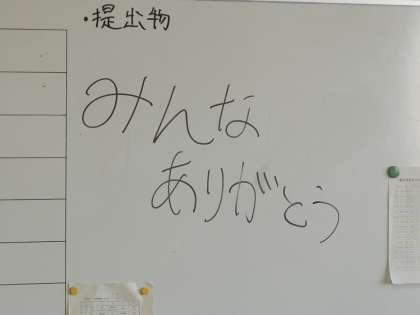 ・提出物
みんな
ありがとう